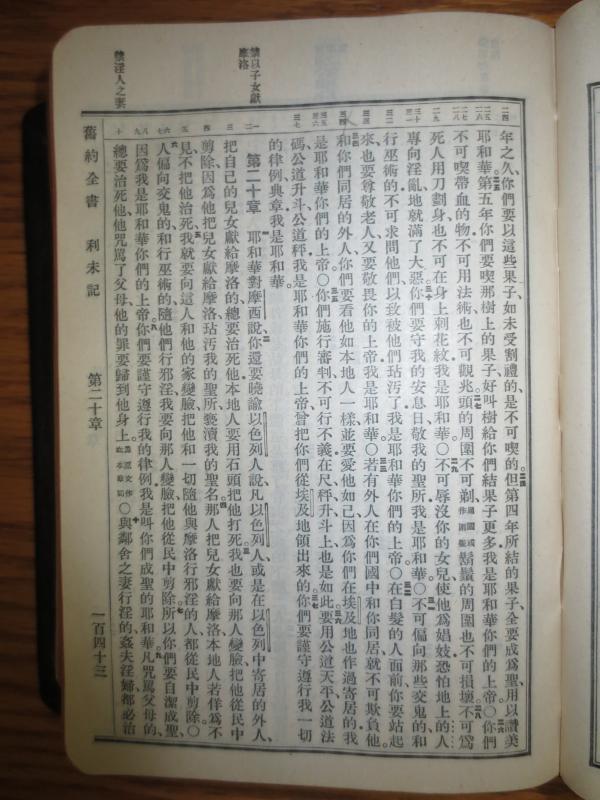 年之久你們要以這些果子如未受割禮的是不可喫的但第四年所結的果子全要成爲聖用以讚美
耶和華第五年你們要喫那樹上的果子好叫樹給你們結果子更多我是耶和華你們的上帝○你們
不可喫帶血的物不可用法術也不可觀兆頭的周圍不可剃鬍鬚的周圍也不可損壞不可爲
死人用刀劃身也不可在身上刺花紋我是耶和華○不可辱沒你的女兒使他爲娼妓恐怕地上的人
專向淫亂地就滿了大惡你們要守我的安息日敬我的聖所我是耶和華○不可偏向那些交鬼的和
行巫術的不可求問他們以致被他們玷污了我是耶和華你們的上帝○在白髮的人面前你要站起
來也要尊敬老人又要敬畏你的上帝我是耶和華○若有外人在你們國中和你同居就不可欺負他
和你們同居的外人你們要看他如本地人一樣並要愛他如己因爲你們在埃及地也作過寄居的我
是耶和華你們的上帝○你們施行審判不可行不義在尺秤升斗上也是如此要用公道天平公道法
碼公道升斗公道秤我是耶和華你們的上帝曾把你們從埃及地領出來的你們要謹守遵行我一切
的律例典章我是耶和華
第二十章 耶和華對摩西說你還要曉諭以色列人說凡以色列人或是在以色列中寄居的外人
把自己的兒女獻給摩洛的總要治死他本地人要用石頭把他打死我也要向那人變臉把他從民中
剪除因爲他把兒女獻給摩洛玷污我的聖所褻瀆我的聖名那人把兒女獻給摩洛本地人若佯爲不
見不把他治死我就要向這人和他的家變臉把他和一切隨他與摩洛行邪淫的人都從民中剪除○
人偏向交鬼的和行巫術的隨他們行邪淫我要向那人變臉把他從民中剪除所以你們要自潔成聖
因爲我是耶和華你們的上帝你們要謹守遵行我的律例我是叫你們成聖的耶和華凡咒罵父母的
總要治死他他咒罵了父母他的罪要歸到他身上○與鄰舍之妻行淫的姦夫淫婦都必治
禁以子女獻摩洛
禁淫人之妻
舊約全書 利未記 第二十章 一百四十三